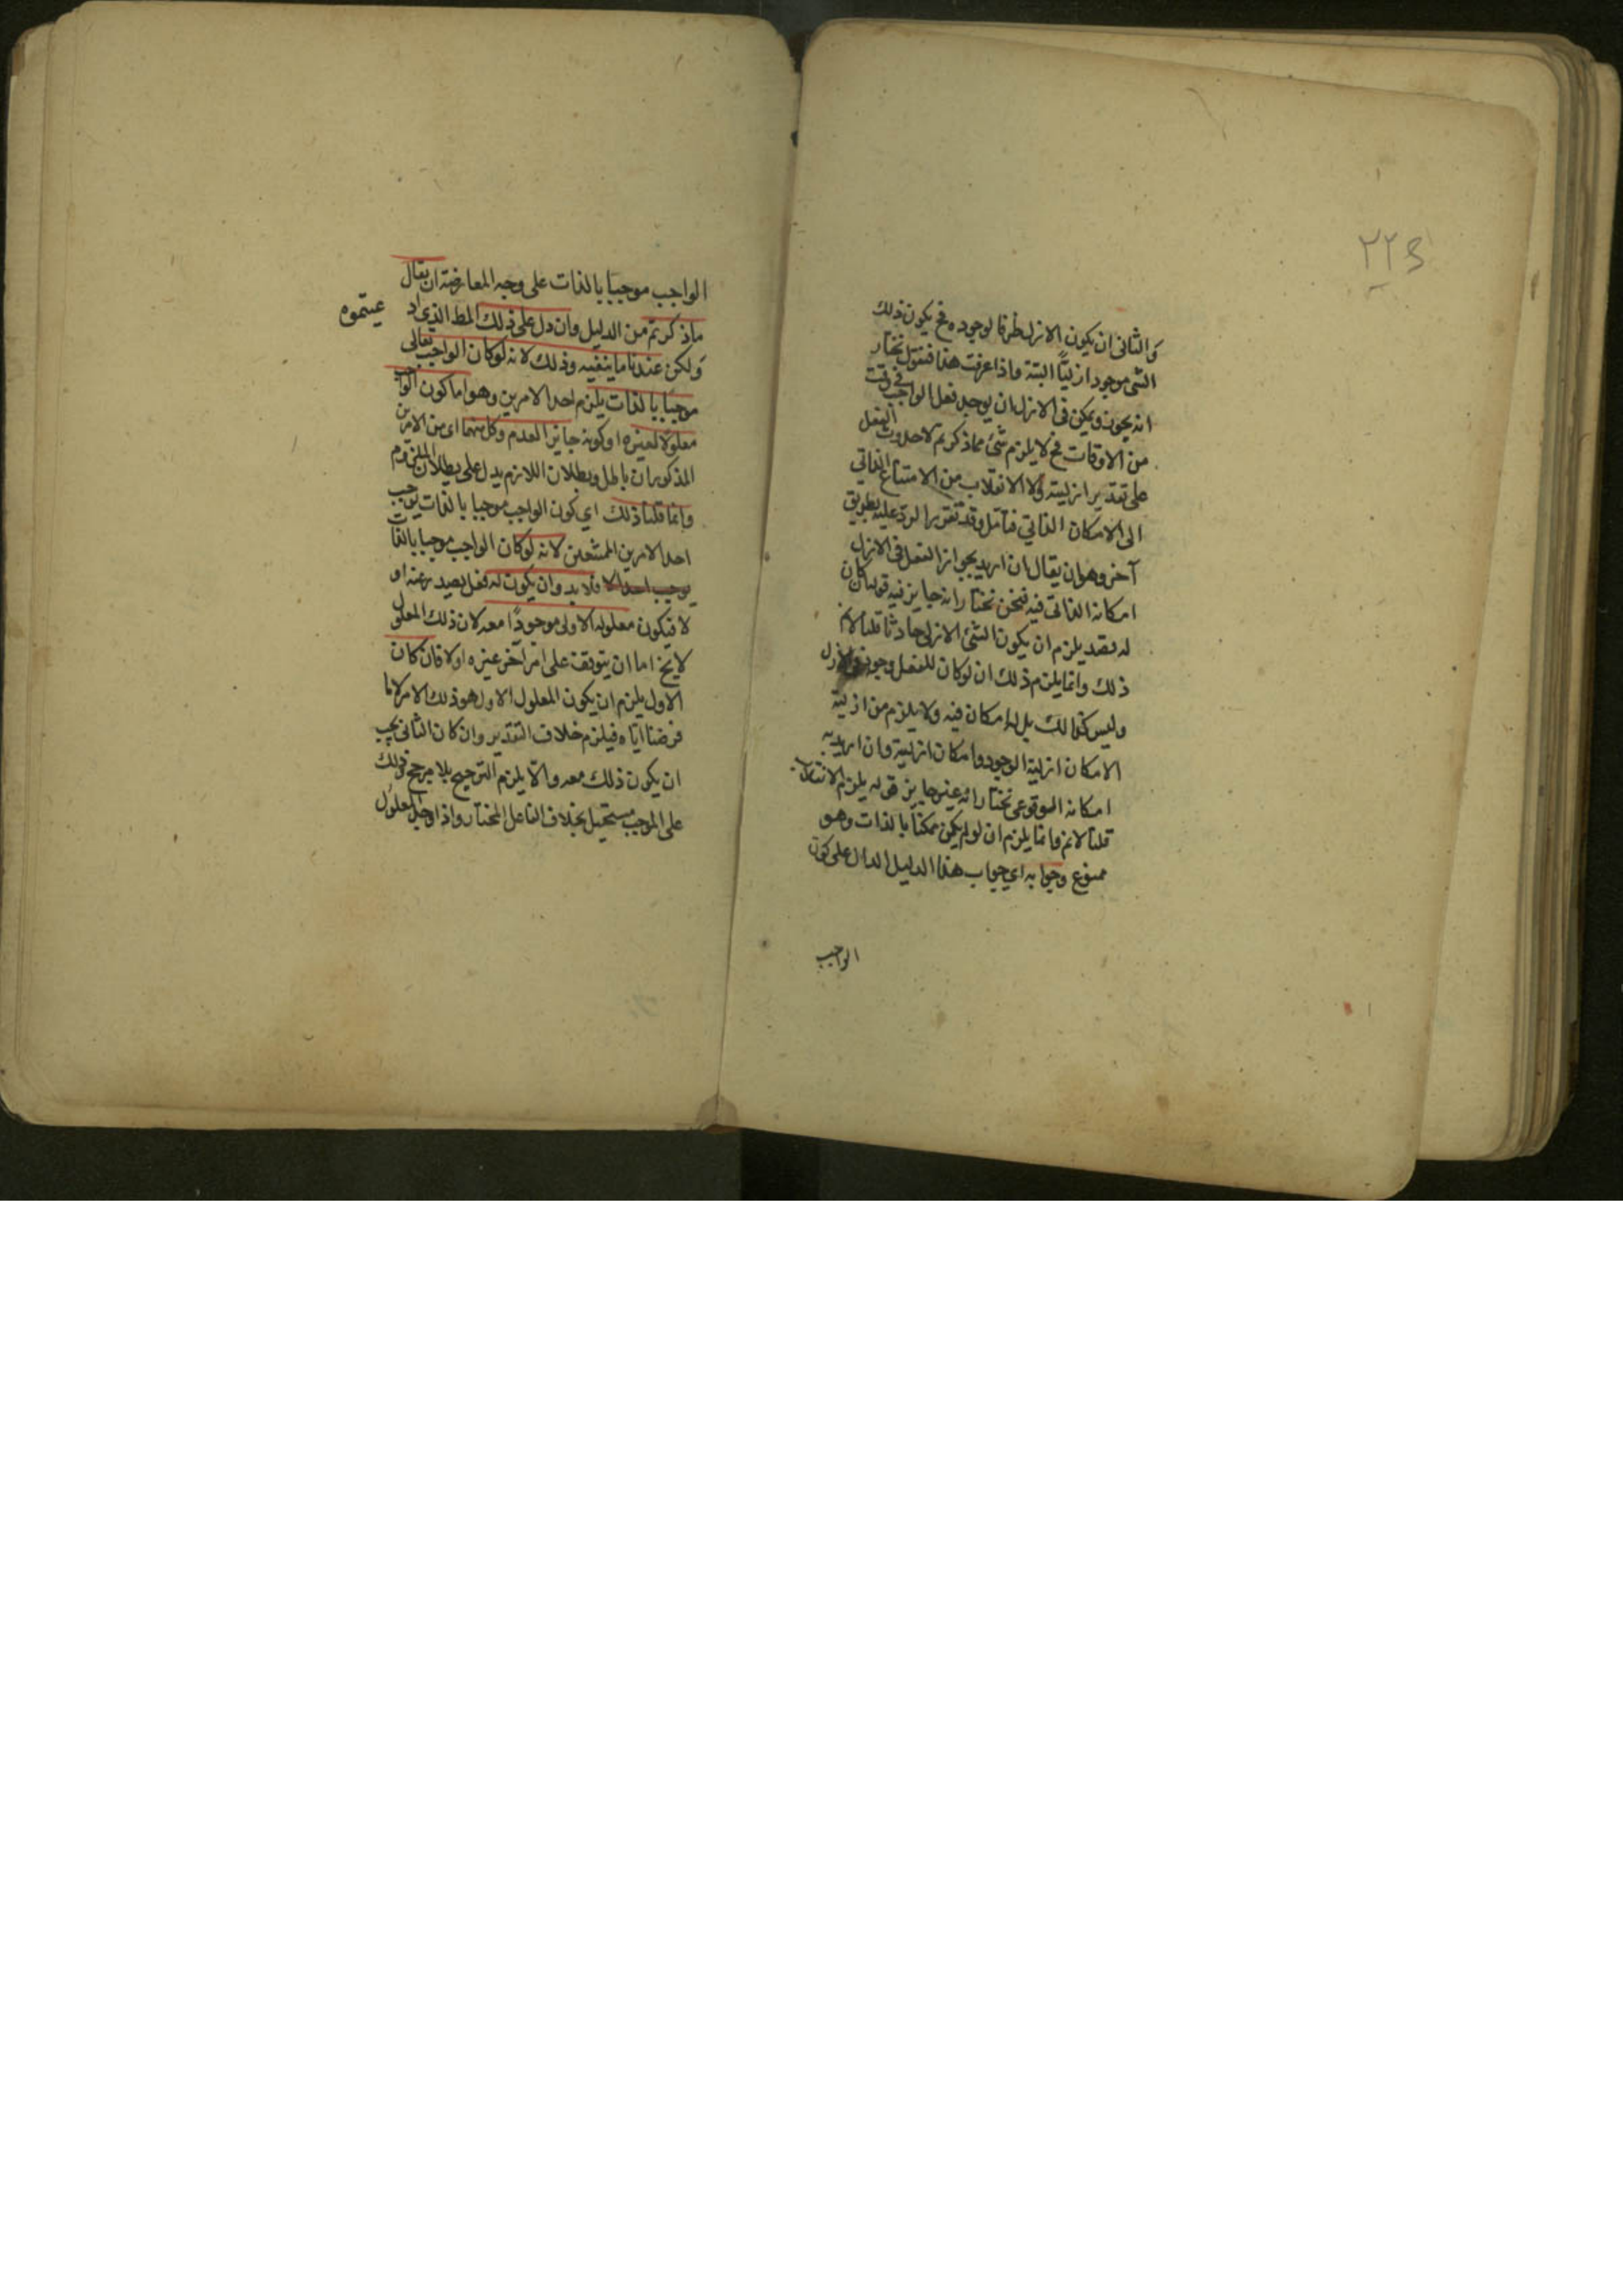 والثانى ان يكون الازل ظرفا لوجوده فح يكون ذلك
الشئ موجود ازليًّا البتة واذا عرفت هذا فنقول نختار
انه يجوز ويمكن فى الازل ان يوجد فعل الواجب فى وقت
من الاوقات فح لا يلزم شئ مما ذكرتم لا حدوث الفعل
على تقدير ازليته ولا الانقلاب من الامتناع الذاتي
الى الامكان الذاتي فتأمل وقد تقرر الرد عليه بطريق
آخر وهو ان يقال ان اريد بجواز الفعل فى الازل
امكانه الذاتى فيه فنحن نختار انه جايز فيه قوله كان
له بعد يلزم ان يكون الشئ الازلى حادثا قلنا لانم
ذلك وانما يلزم ذلك ان لو كان للفعل وجود فى الازل
وليس كذالك بل له امكان فيه ولا يلزم من ازلية
الامكان ازلية الوجود وامكان ازلية وان اريد به
امكانه الوقوعى نختار انه غير جايز قوله يلزم الانقلاب
قلنا لانم وانما يلزم ان لو لم يكن ممكنا بالذات وهو
ممنوع وجوابه اي جواب هذا الدليل الدال على كون
الواجب
الواجب موجبا بالذات على وجه المعارضة ان يقال
ما ذكرتم من الدليل وان دل على ذلك المط الذى اد
عيتموه
ولكن عندنا ما ينفيه وذلك لانه لو كان الواجب تعالى
موجبا بالذات يلزم احد الامرين وهو اما كون الواجب
معلولا لغيره او كونه جايز العدم وكل منهما اى من الامرين
المذكوران باطل وبطلان اللازم يدل على بطلان الملزوم
وانما قلنا ذلك اي كون الواجب موجبا بالذات يوجب
احد الامرين الممتنعين لانه لو كان الواجب موجبا بالذات
يوجب احد الا فلا بد وان يكون له فعل يصدر عنه او
لا فيكون معلوله الاولى موجودًا معه لان ذلك المعلول
لا يخ اما ان يتوقف على امر آخر غيره او لا فان كان
الاول يلزم ان يكون المعلول الاول هو ذلك الامر لا ما
فرضنا اياه فيلزم خلاف التقدير وان كان الثانى يجب
ان يكون ذلك معه والا يلزم الترجيح بلا مرجح وذلك
على الموجب مستحيل بخلاف الفاعل المختار واذا وجد المعلول